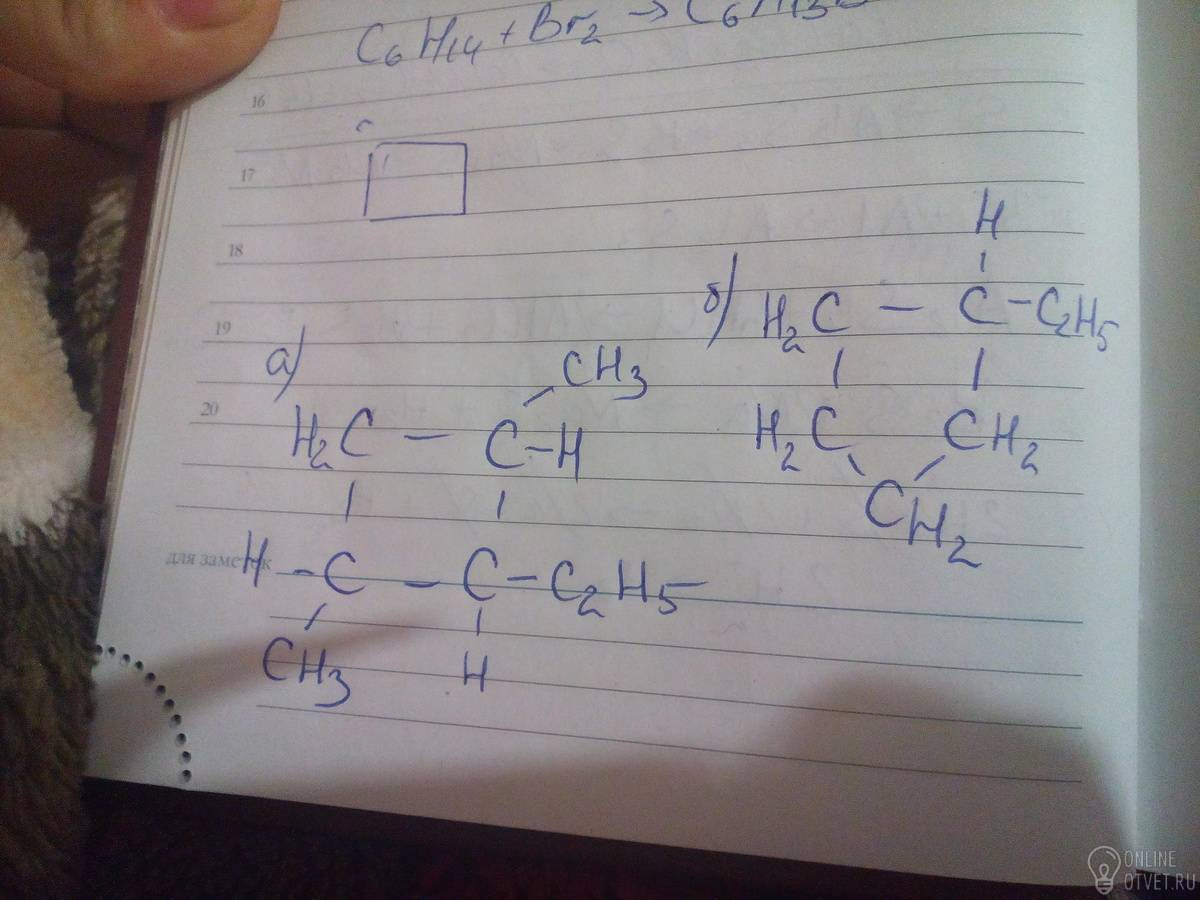 C6H14 + Br2 → C6H13
16
17
18
19
20
для заметок
а)
CH3
H2C — C — H
H — C — C — C2H5
CH3 H
б)
H
H2C — C — C2H5
H2C CH2
CH2
ONLINE
OTVET.RU